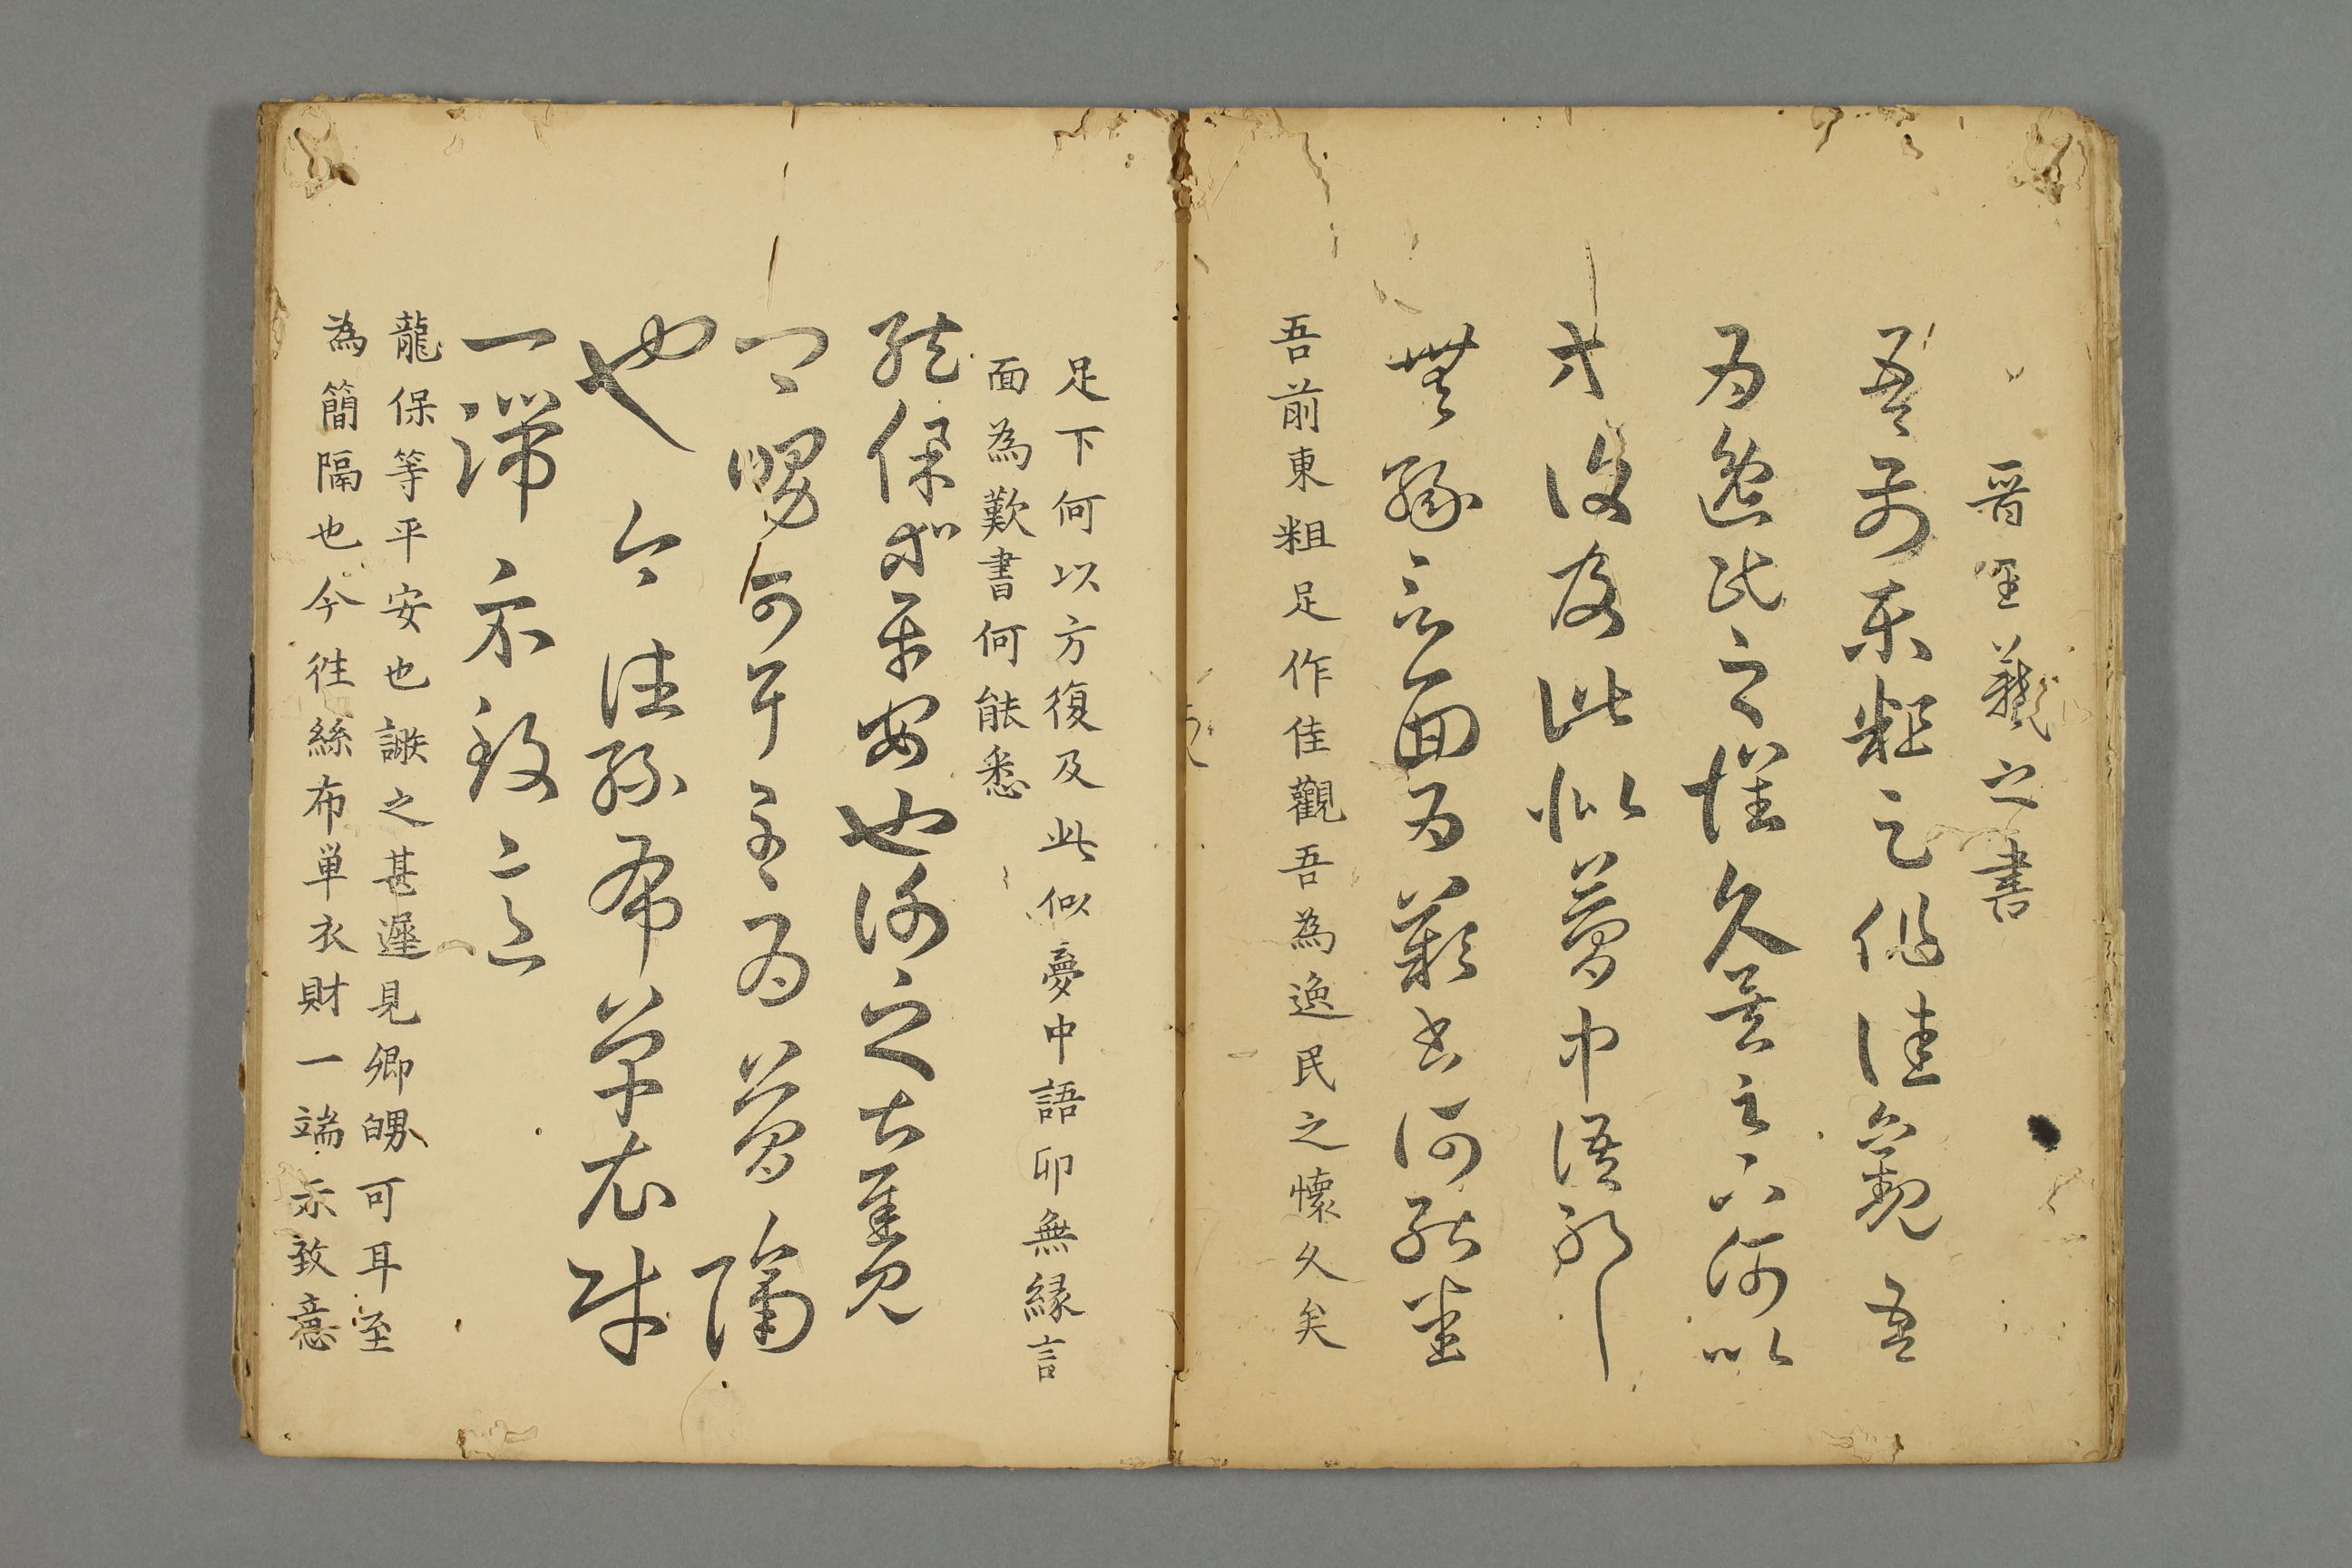 晋王羲之書
吾前東粗足作佳觀吾
為逸民之懷久矣足下何以
方復及此似夢中語耶
無縁言面為歎書何能悉
吾前東粗足作佳觀吾為逸民之懷久矣
足下何以方復及此似夢中語卯無縁言
面為歎書何能悉
龍保等平安也謝之甚遲見
卿舅可耳至為簡隔
也今往絲布單衣財
一端示致意
龍保等平安也之甚遲見卿舅可耳至
為簡隔也今徃絲布単衣財一端示致意